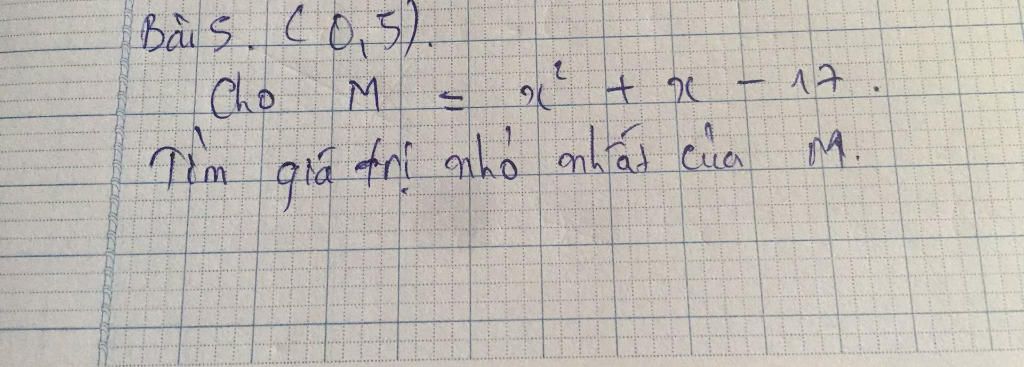 Bài 5. (0,5).
Cho M = x² + x - 17.
Tìm giá trị nhỏ nhất của M.